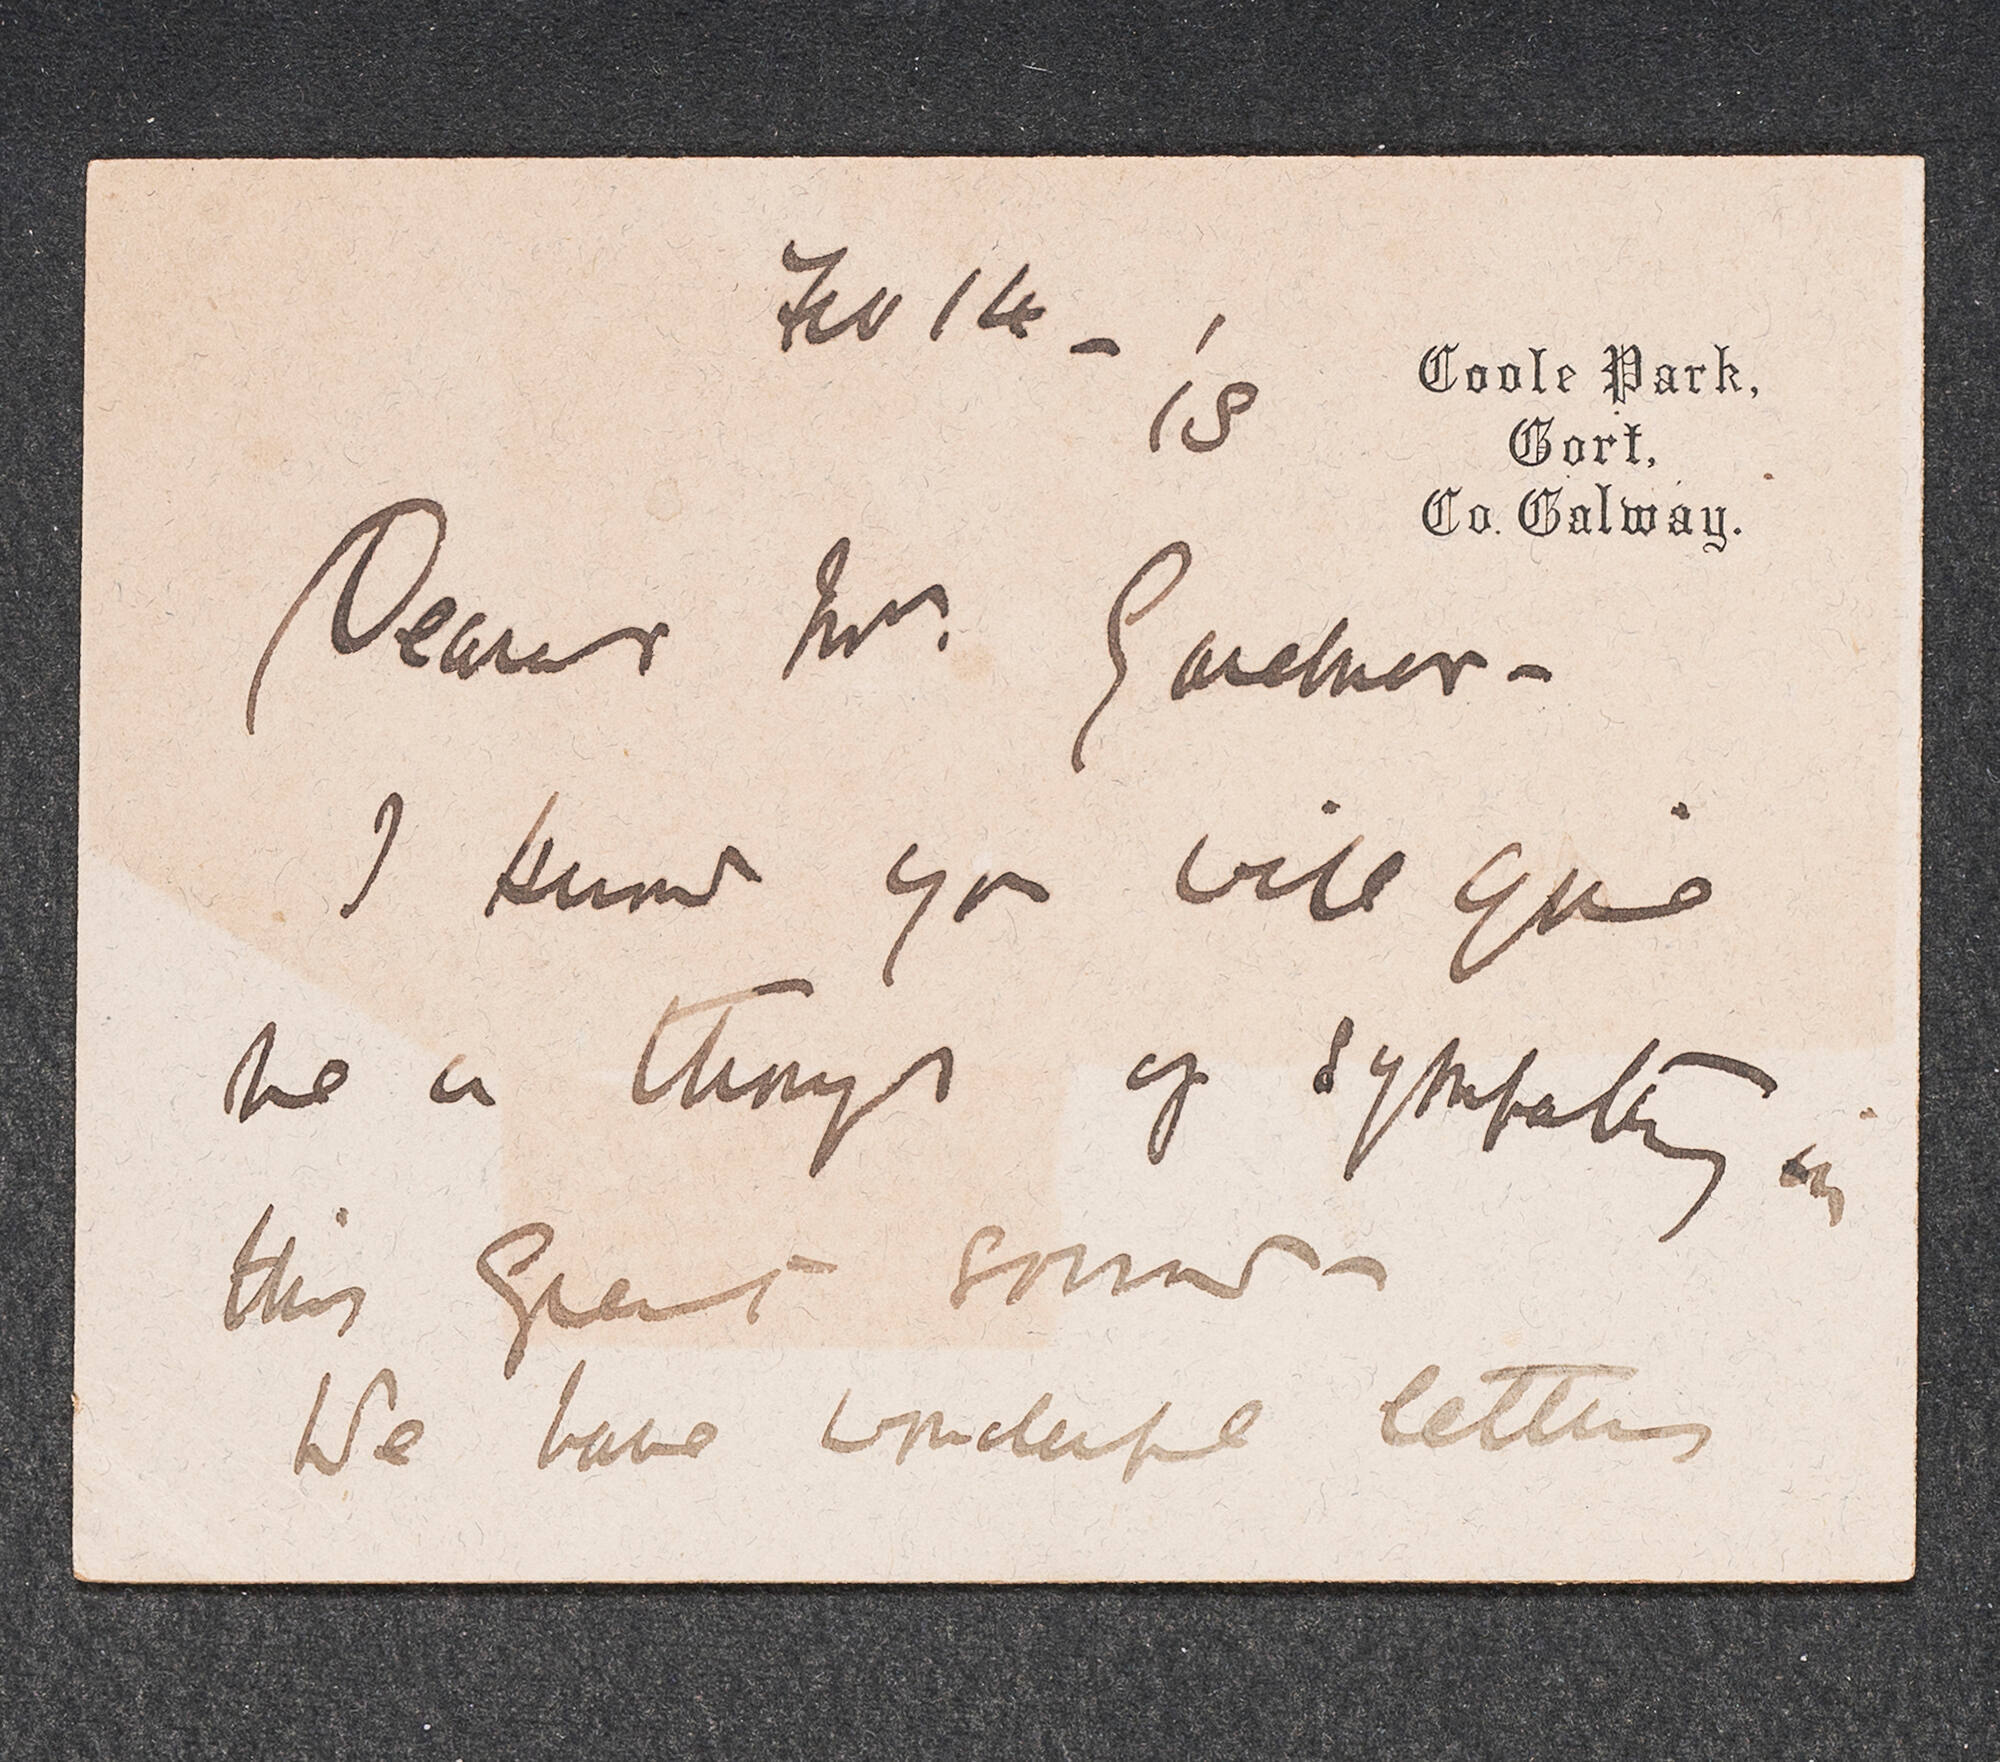 Feb 14 - '18
Coole Park,
Gort,
Co. Galway.
Dear Mrs. Gardner -
I know you will give
me a thought of sympathy in
this great sorrow -
We have wonderful letters